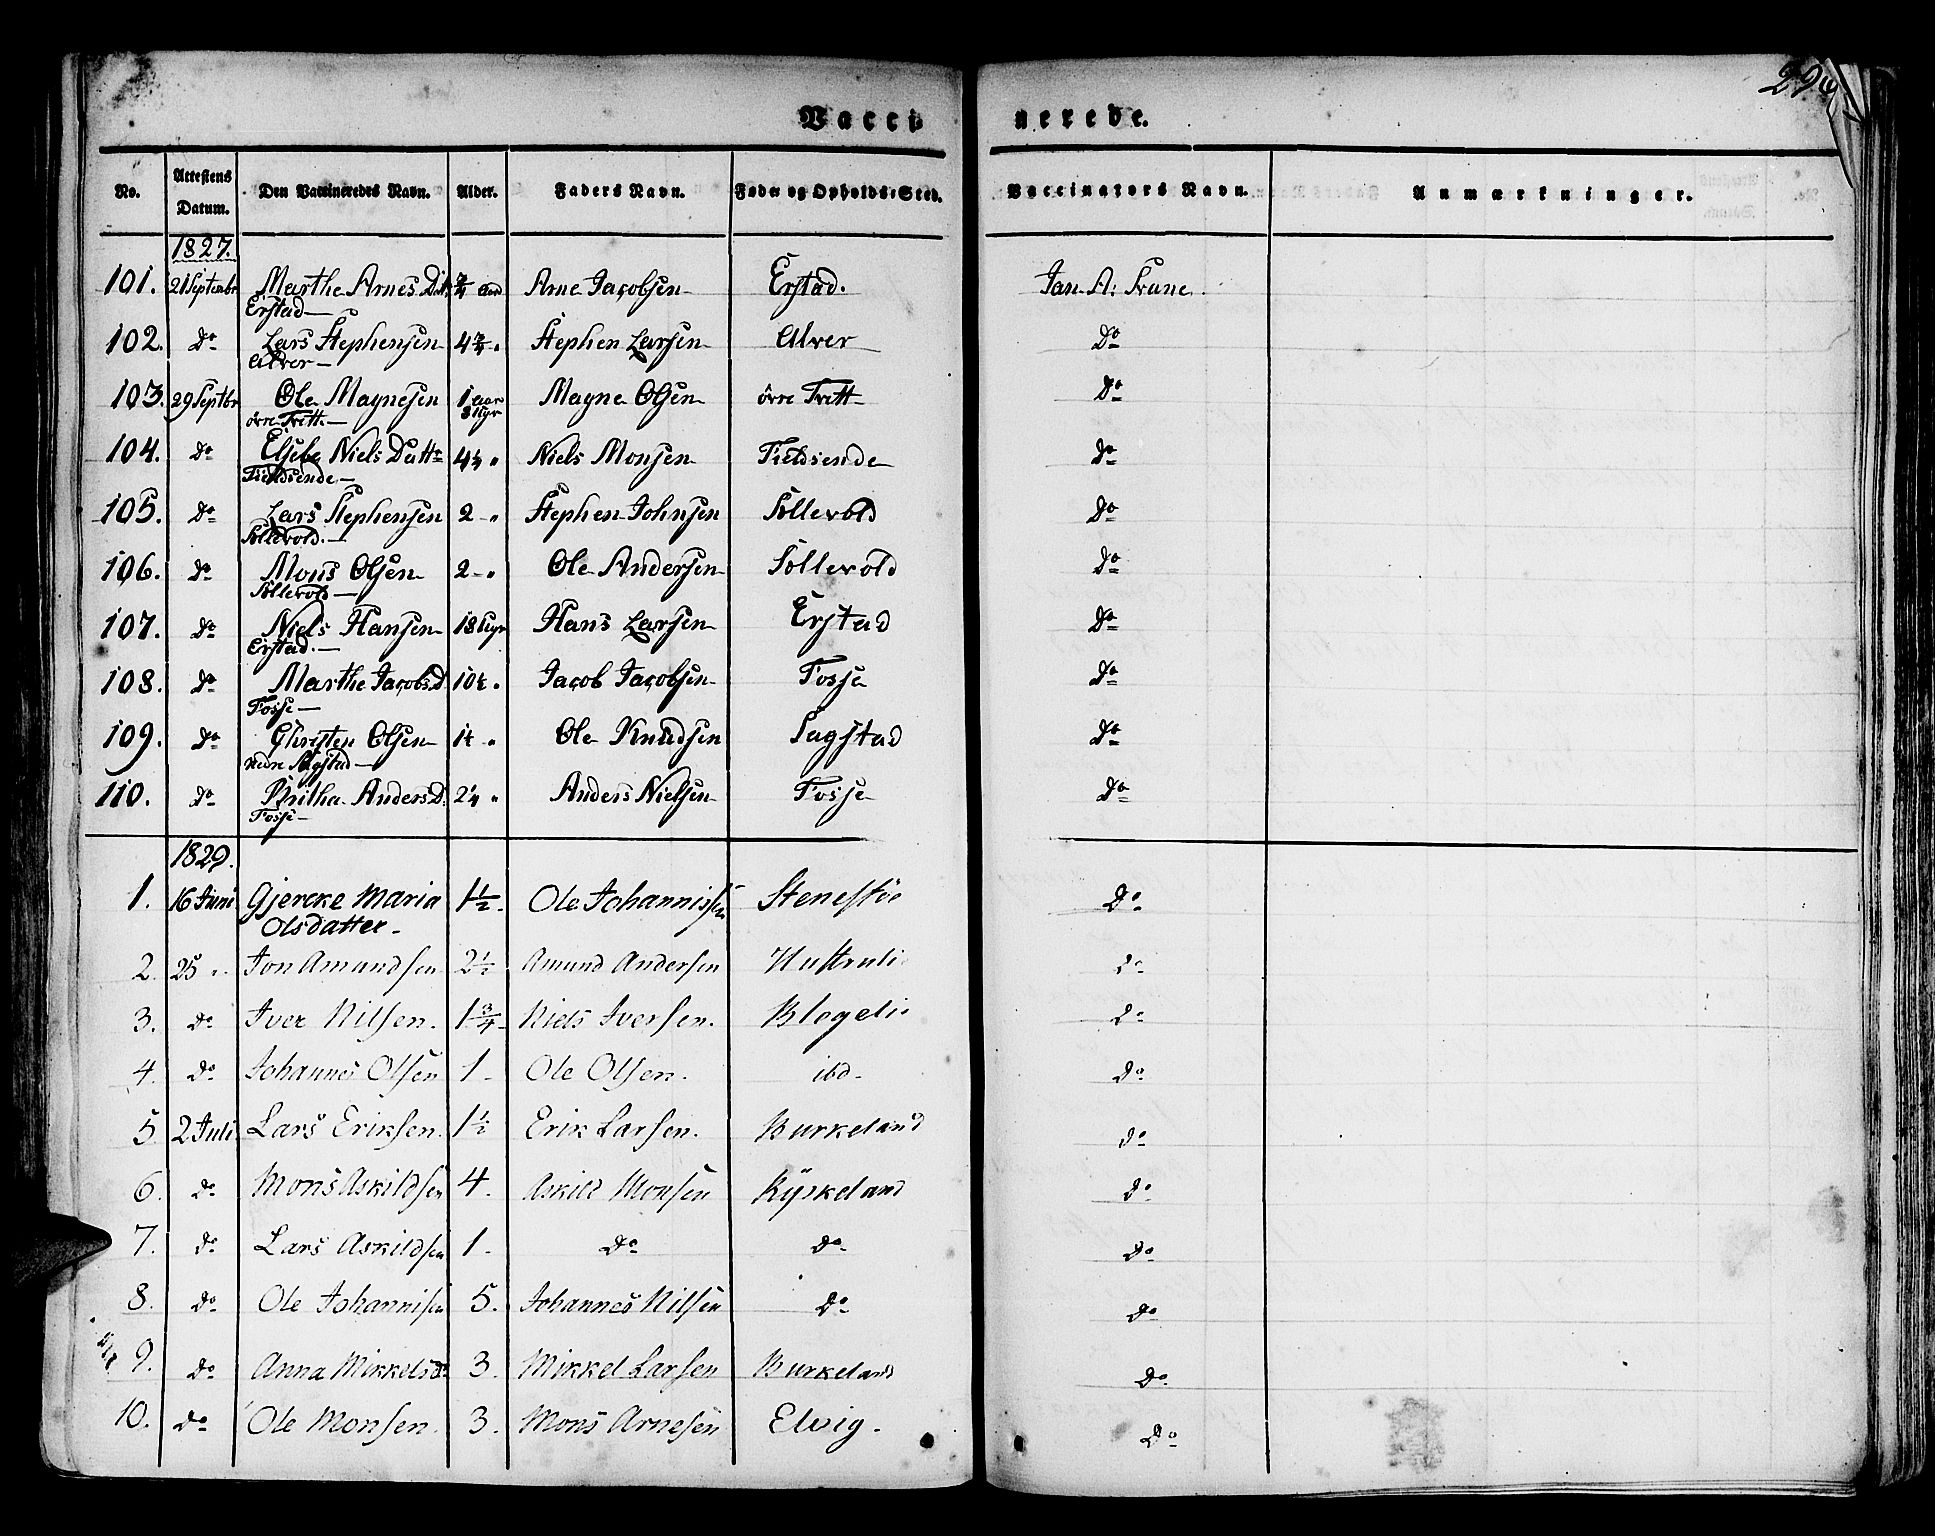 Vaccinerede.
No. | Attestens Datum. | Den Vaccineredes Navn. | Alder. | Faders Navn. | Føde og Opholds-Sted. | Vaccinators Navn. | Anmærkninger.
1827.
101. | 21 Septembr | Marthe Arnes Datt | 3/4 aar | Arne Jacobsen | Erstad. | Jan A: Trane
Erstad—
102. | Do | Lars Stephensen | 4 3/4 " | Stephen Larsen | Alver | Do
Alver—
103. | 29 Septbr | Ole Magnesen | 1 aar | Magne Olsen | övre Tvett | Do
övre Tvett.—
104. | Do | Elsebe Niels Dattr | 4 1/2 " | Niels Monsen | Fieldsende | Do
Fieldsende—
105. | Do | Lars Stephensen | 2 – " | Stephen Johnsen | Sollevold | Do
Sollevold.—
106. | Do | Mons Olsen | 2 – " | Ole Andersen | Sollevold | Do
Sollevold—
107. | Do | Niels Hansen | 18 Ugr | Hans Larsen | Erstad | Do
Erstad.—
108. | Do | Marthe Jacobs D. | 10 1/2 " | Jacob Jacobsen | Fosse | Do
Fosse—
109. | Do | Christen Olsen | 1 1/2 " | Ole Knudsen | Sagstad | Do
nedre Sagstad—
110. | Do | Britha Anders D. | 2 1/4 " | Anders Nielsen | Fosse | Do
Fosse—
1829.
1. | 16 Juni | Gjercke Maria | 1 1/2. | Ole Johannissen | Stenestöe | Do
Olsdatter.
2. | 25 " | Jon Amundsen | 2 1/2 | Amund Andersen | | Do
3. | Do | Iver Nilsen. | 1 3/4 | Niels Iversen. | | Do
4. | Do | Johannes Olsen | 1 – | Ole Olsen. | ibd. | Do
5. | 2 Juli | Lars Eriksen. | 1 1/2 | Erik Larsen. | Burkeland | Do
6. | Do | Mons Askildsen | 4. | Askild Monsen | Rÿskeland | Do
7. | Do | Lars Askildsen | 1 – | Do | Do | Do
8. | Do | Ole Johannisen | 5. | Johannes Nilsen | Do | Do
9. | Do | Anna Mikkelsd. | 3. | Mikkel Larsen | Burkeland | Do
10. | Do | Ole Monsen. | 3. | Mons Arnesen | Elvig. | Do